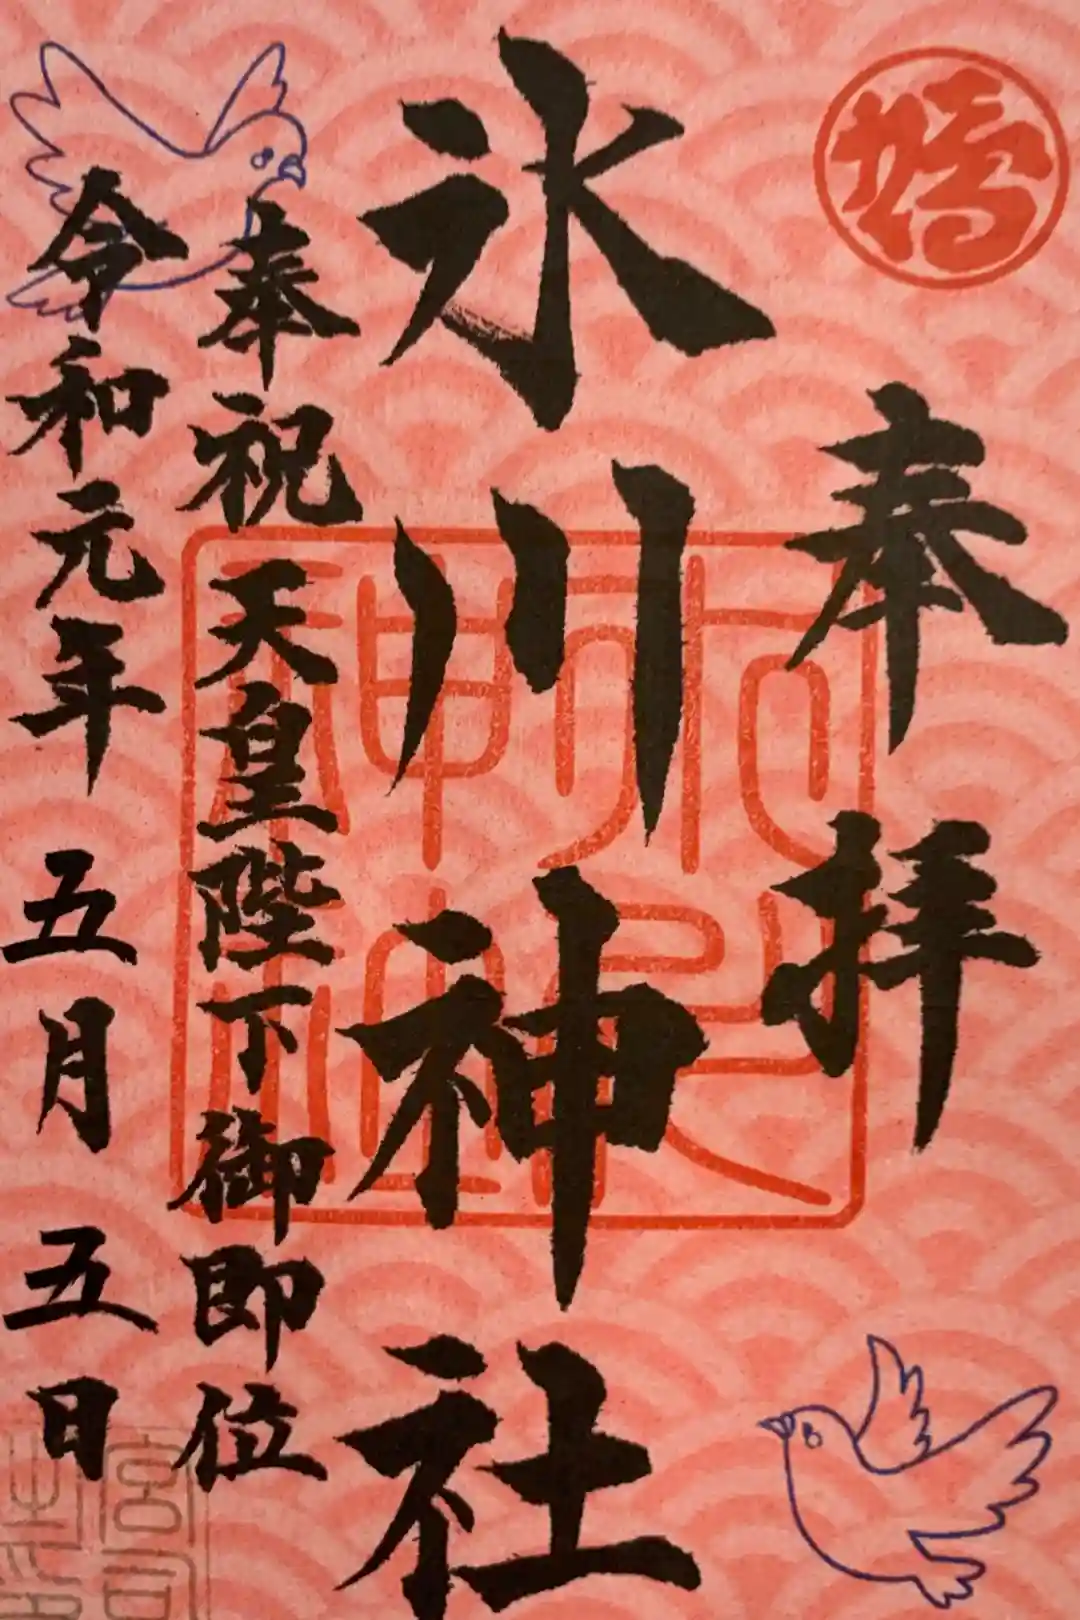 奉拝
氷川神社
奉祝 天皇陛下御即位
令和元年 五月 五日
宮司